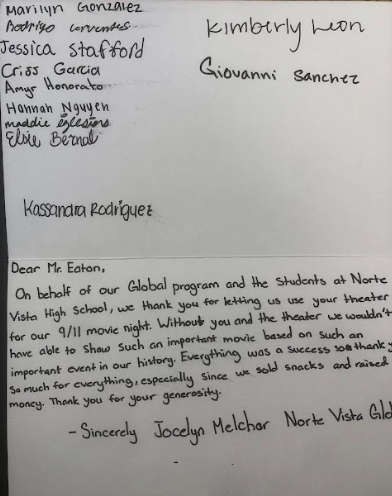 Marilyn Gonzalez
Rodrigo Cervantes
Jessica Stafford
Criss Garcia
Amyr Honorato
Hannah Nguyen
maddie Iglesias
Elsie Bernal
Kimberly Leon
Giovanni Sanchez
Kassandra Rodriguez
Dear Mr. Eaton,
On behalf of our Global program and the Students at Norte
Vista High School, we thank you for letting us use your theater
for our 9/11 movie night. Without you and the theater we wouldn't
have able to show such an important movie based on such an
important event in our history. Everything was a success thank
so much for everything, especially since we sold snacks and raised
money. Thank you for your generosity.
- Sincerely Jocelyn Melchor Norte Vista